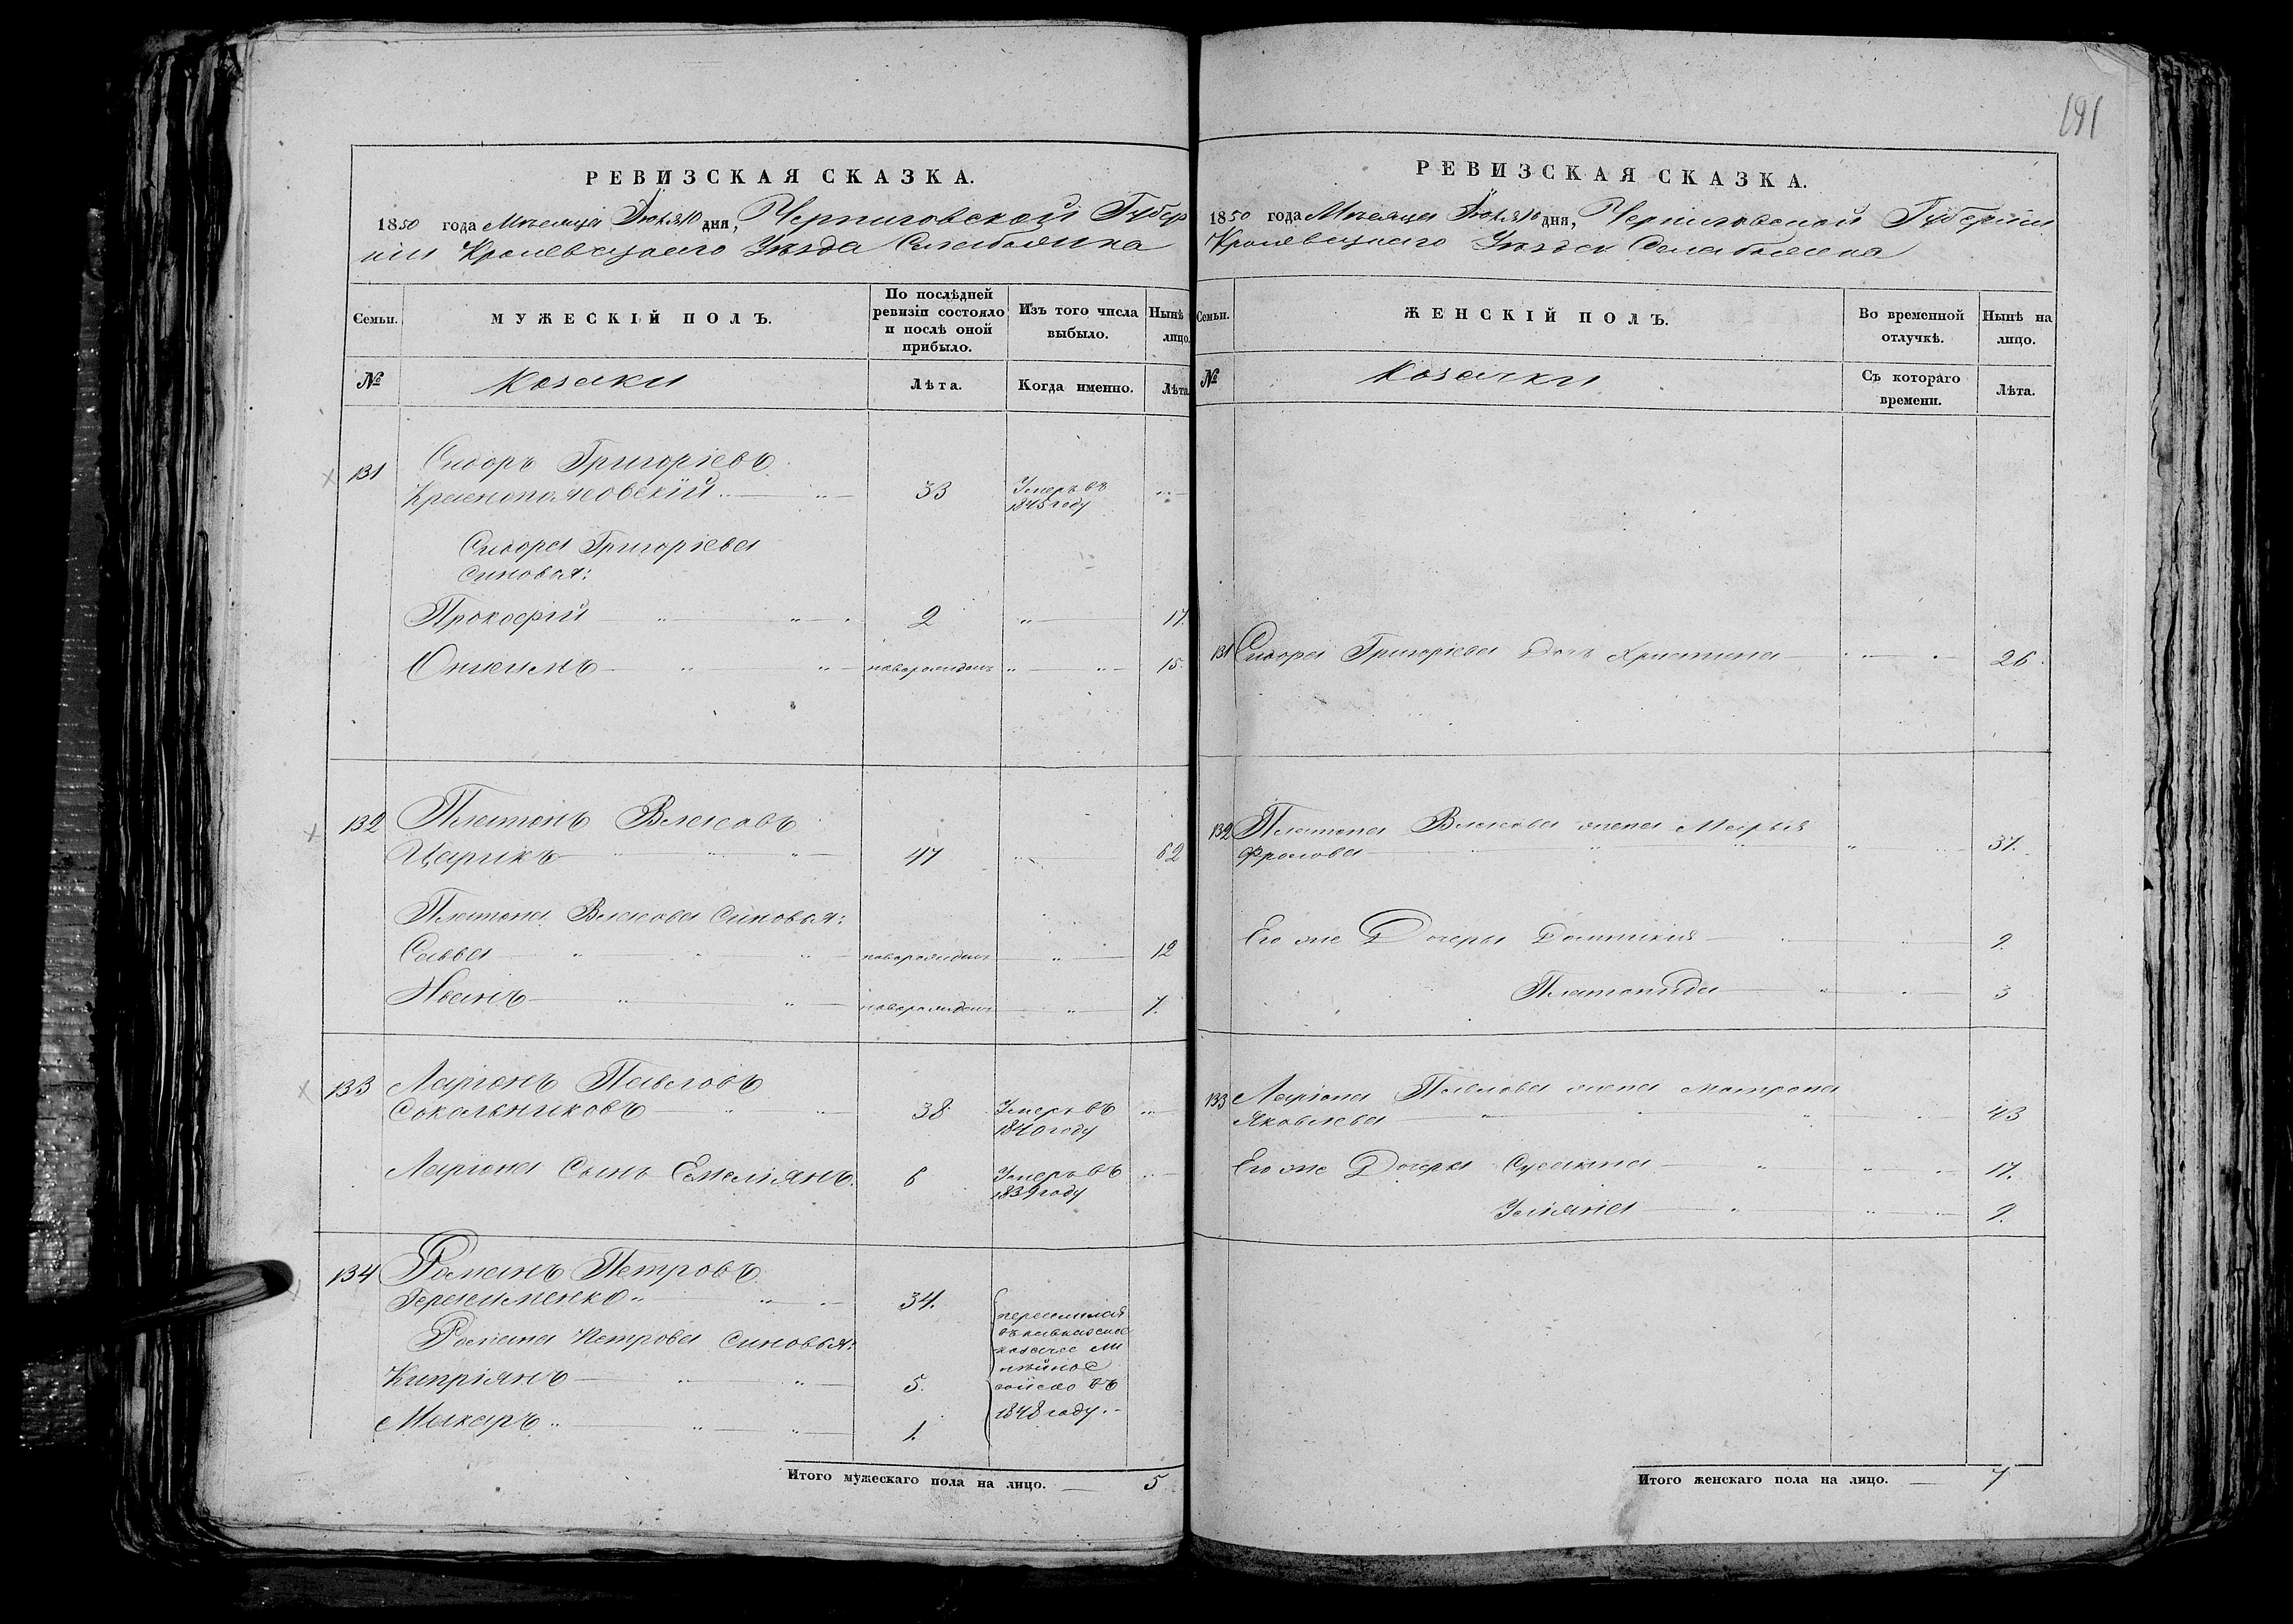 191
РЕВИЗСКАЯ СКАЗКА.
1850 года Месяца Июля 10 дня, Черниговской Губер
нии Кролевецкого Уезда Села
Семьи.
МУЖЕСКІЙ ПОЛЪ.
По послѣдней ревизіи состояло и послѣ оной прибыло.
Изъ того числа выбыло.
Нынѣ лицо.
№
Козаки
Лѣта.
Когда именно.
Лѣта
131 Сидоръ Григоріевъ
Краснопаловскій 33 Умеръ въ 1845 году
Сидора Григоріева
Синовья:
Прокофій 2 17.
новорожден 15.
132 Платонъ Власовъ
Царикъ 47 62
Платона Власова Синовья:
Савва новорожден 12
Иванъ новорожден 7.
133 Ларіонъ Павловъ
Сокольниковъ 38 Умеръ въ 1840 году
Ларіона Сынъ Емеліянъ 6 Умеръ въ 1839 году
134 Романъ Петровъ
Герасименко 34.
Романа Петрова Синовья:
Кипріянъ 5.
Макаръ 1.
переселился
въ кавказское
козачее ли
нѣйное
войско въ
1848 году.
Итого мужескаго пола на лицо. 5
РЕВИЗСКАЯ СКАЗКА.
1850 года Месяца Июля 10 дня, Черниговской Губерніи
Кролевецкаго Уезда Села
Семьи.
ЖЕНСКІЙ ПОЛЪ.
Во временной отлучкѣ.
Нынѣ на лицо.
№
Козачки
Съ котораго времени.
Лѣта.
131 Сидора Григоріева дочь Христина 26.
132 Платона Власова жена Марья
Фролова 37.
Его же Дочери Домникия 9.
Платонида 3
133 Ларіона Павлова жена Матрона
Яковлева 43
Его же Дочери Сусанна 17.
Уліяна 9.
Итого женскаго пола на лицо. 7